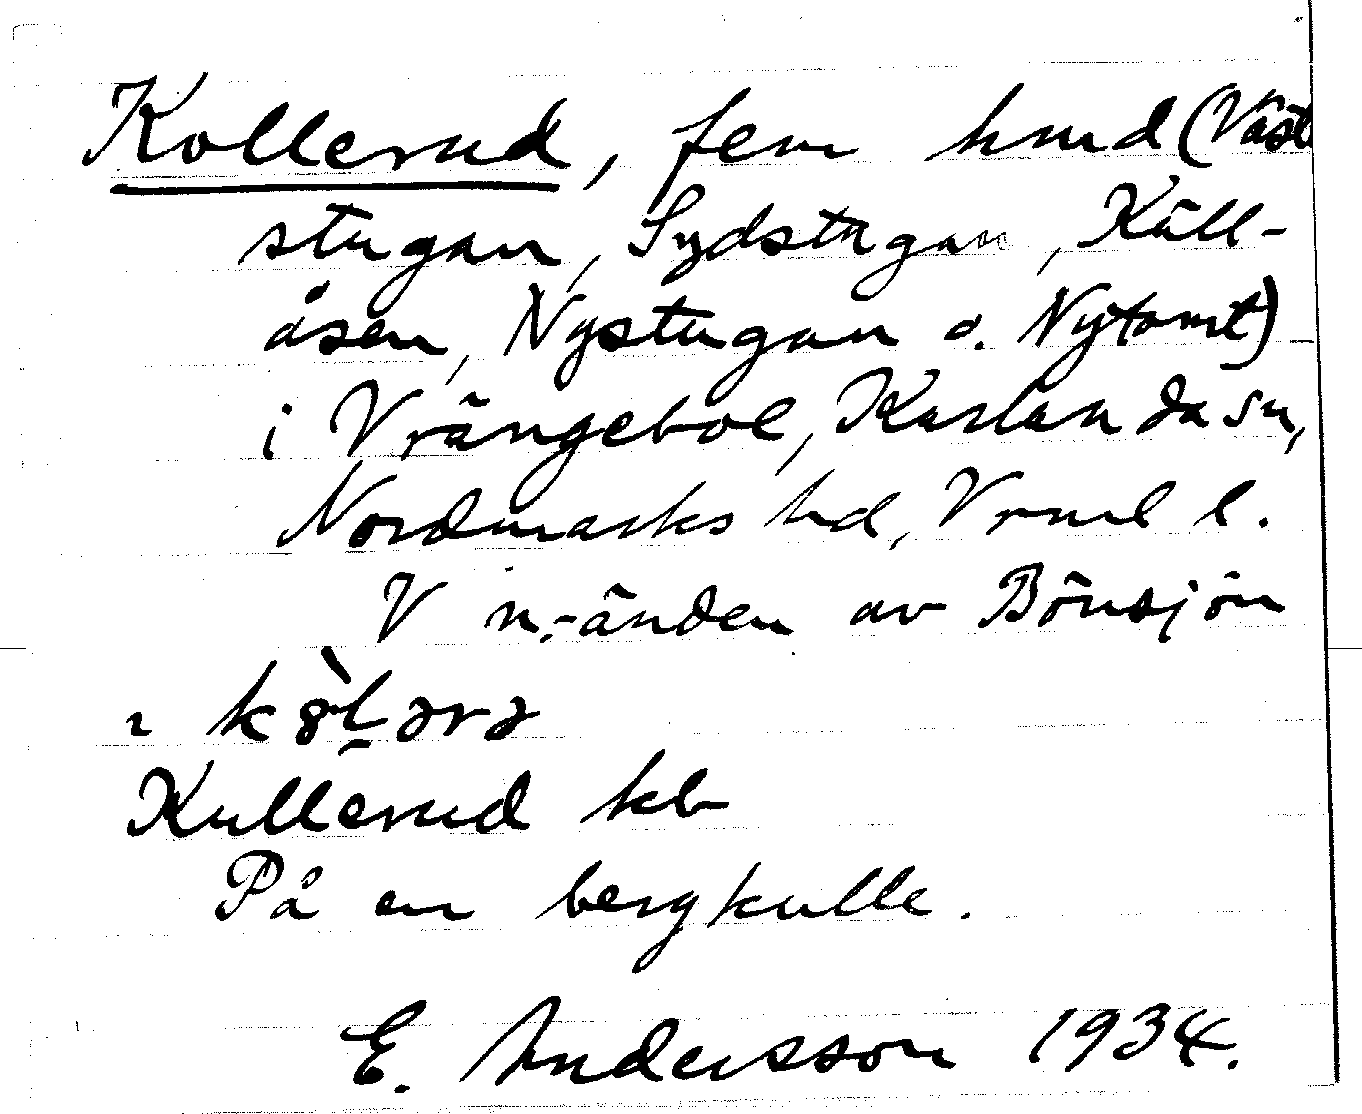 Kollerud, fem hmd (Väst
stugan, Sydstugan, Käll-
åsen, Nystugan o. Nytomt)
i Vrängebol, Karlanda sn,
Nordmarks hd, Vrml l.
V n.-änden av Bönsjön
Kullerud kb
På en bergkulle.
E. Andersson 1934.